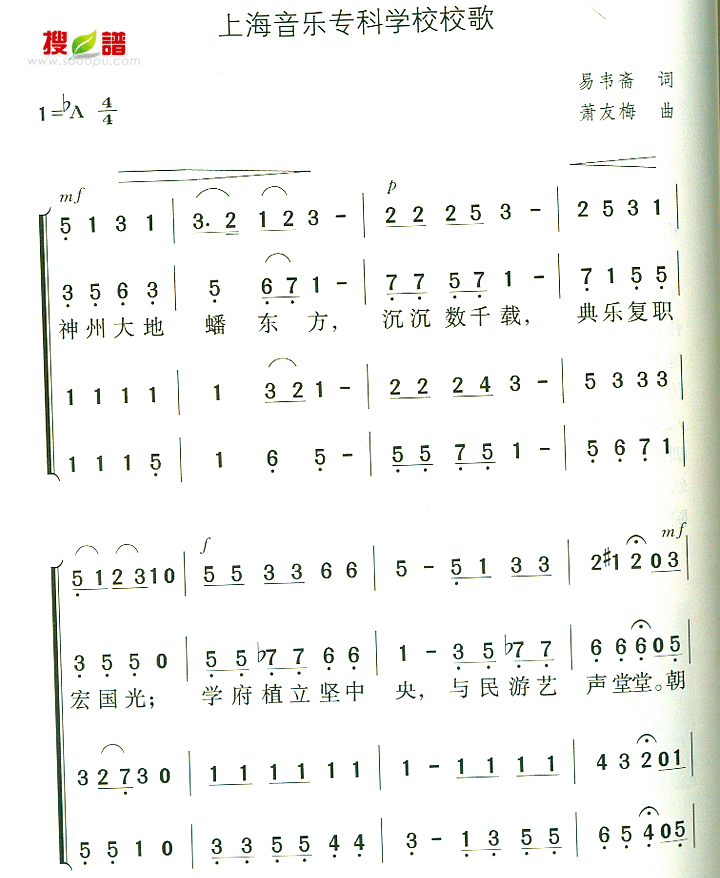 上海音乐专科学校校歌
搜 譜
www.sooopu.com
易韦斋 词
1=♭A 4/4
萧友梅 曲
mf p
5̣ 1 3 1 | 3. 2 1 2 3 - | 2 2 2 5 3 - | 2 5 3 1 |
3̣ 5̣ 6̣ 3̣ | 5̣ 6̣ 7̣ 1 - | 7̣ 7̣ 5̣ 7̣ 1 - | 7̣ 1 5̣ 5̣ |
神州大地 蟠 东 方， 沉沉数千载， 典乐复职
1 1 1 1 | 1 3 2 1 - | 2 2 2 4 3 - | 5 3 3 3 |
1 1 1 5̣ | 1 6̣ 5̣ - | 5̣ 5̣ 7̣ 5̣ 1 - | 5̣ 6̣ 7̣ 1 |
f mf
5̣ 1 2 3 1 0 | 5 5 3 3 6 6 | 5 - 5̣ 1 3 3 | 2 #1 2 0 3 |
3̣ 5̣ 5̣ 0 | 5̣ 5̣ ♭7̣ 7̣ 6̣ 6̣ | 1 - 3̣ 5̣ ♭7̣ 7̣ | 6̣ 6̣ 6̣ 0 5̣ |
宏国光； 学府植立坚中 央，与民游艺 声堂堂。朝
3 2 7̣ 3 0 | 1 1 1 1 1 1 | 1 - 1 1 1 1 | 4 3 2 0 1 |
5̣ 5̣ 1 0 | 3̣ 3̣ 5̣ 5̣ 4̣ 4̣ | 3̣ - 1 3̣ 5̣ 5̣ | 6̣ 5̣ 4̣ 0 5̣ |